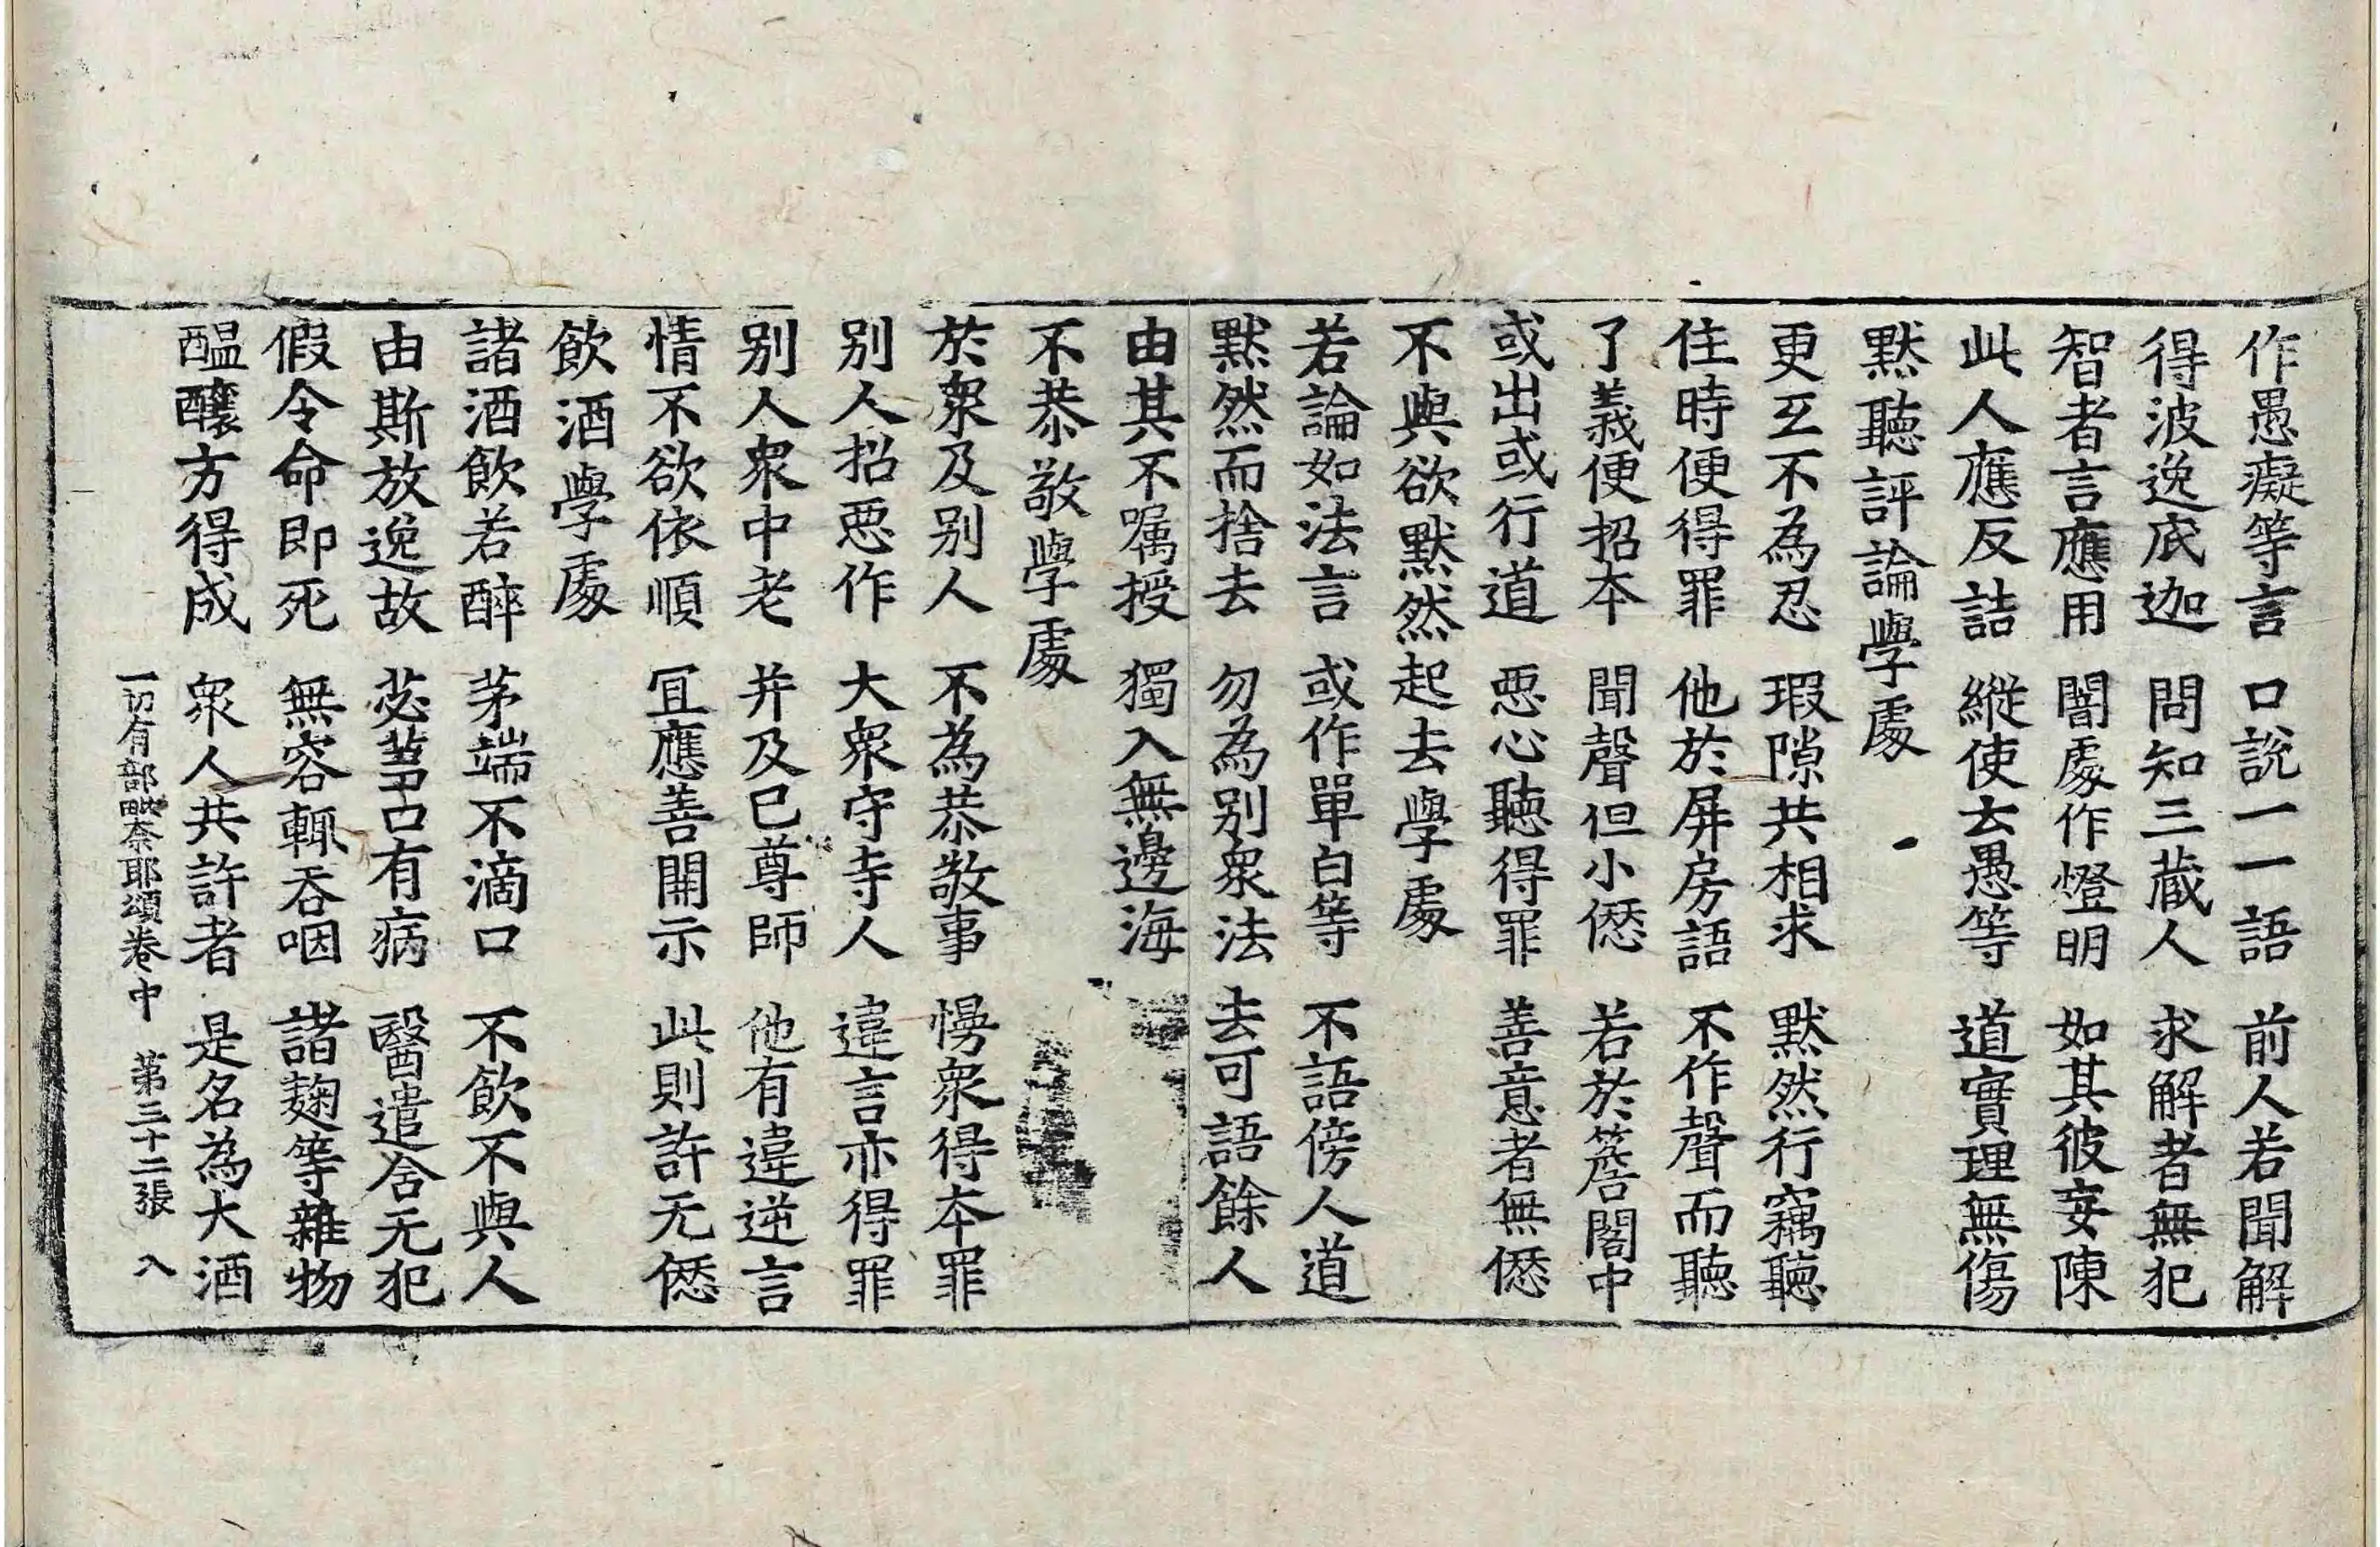 作愚癡等言 口說一一語 前人若聞解
得波逸底迦 問知三藏人 求解者無犯
智者言應用 闇處作燈明 如其彼妄陳
此人應反詰 縱使去愚等 道實理無傷
默聽評論學處
更互不為忍 瑕隙共相求 默然行竊聽
住時便得罪 他於屏房語 不作聲而聽
了義便招本 聞聲但小𠎝 若於簷閣中
或出或行道 惡心聽得罪 善意者無𠎝
不與欲默然起去學處
若論如法言 或作單白等 不語傍人道
默然而捨去 勿為別衆法 去可語餘人
由其不囑授 獨入無邊海
不恭敬學處
於衆及別人 不為恭敬事 慢衆得本罪
別人招惡作 大衆守寺人 違言亦得罪
別人衆中老 并及己尊師 他有違逆言
情不欲依順 冝應善開示 此則許无𠎝
飲酒學處
諸酒飲若醉 茅端不滴口 不飲不與人
由斯放逸故 苾蒭若有病 醫遣含无犯
假令命即死 無容輒吞咽 諸麴等雜物
醖釀方得成 衆人共許者 是名為大酒
一切有部毗奈耶頌卷中 第三十二張 入